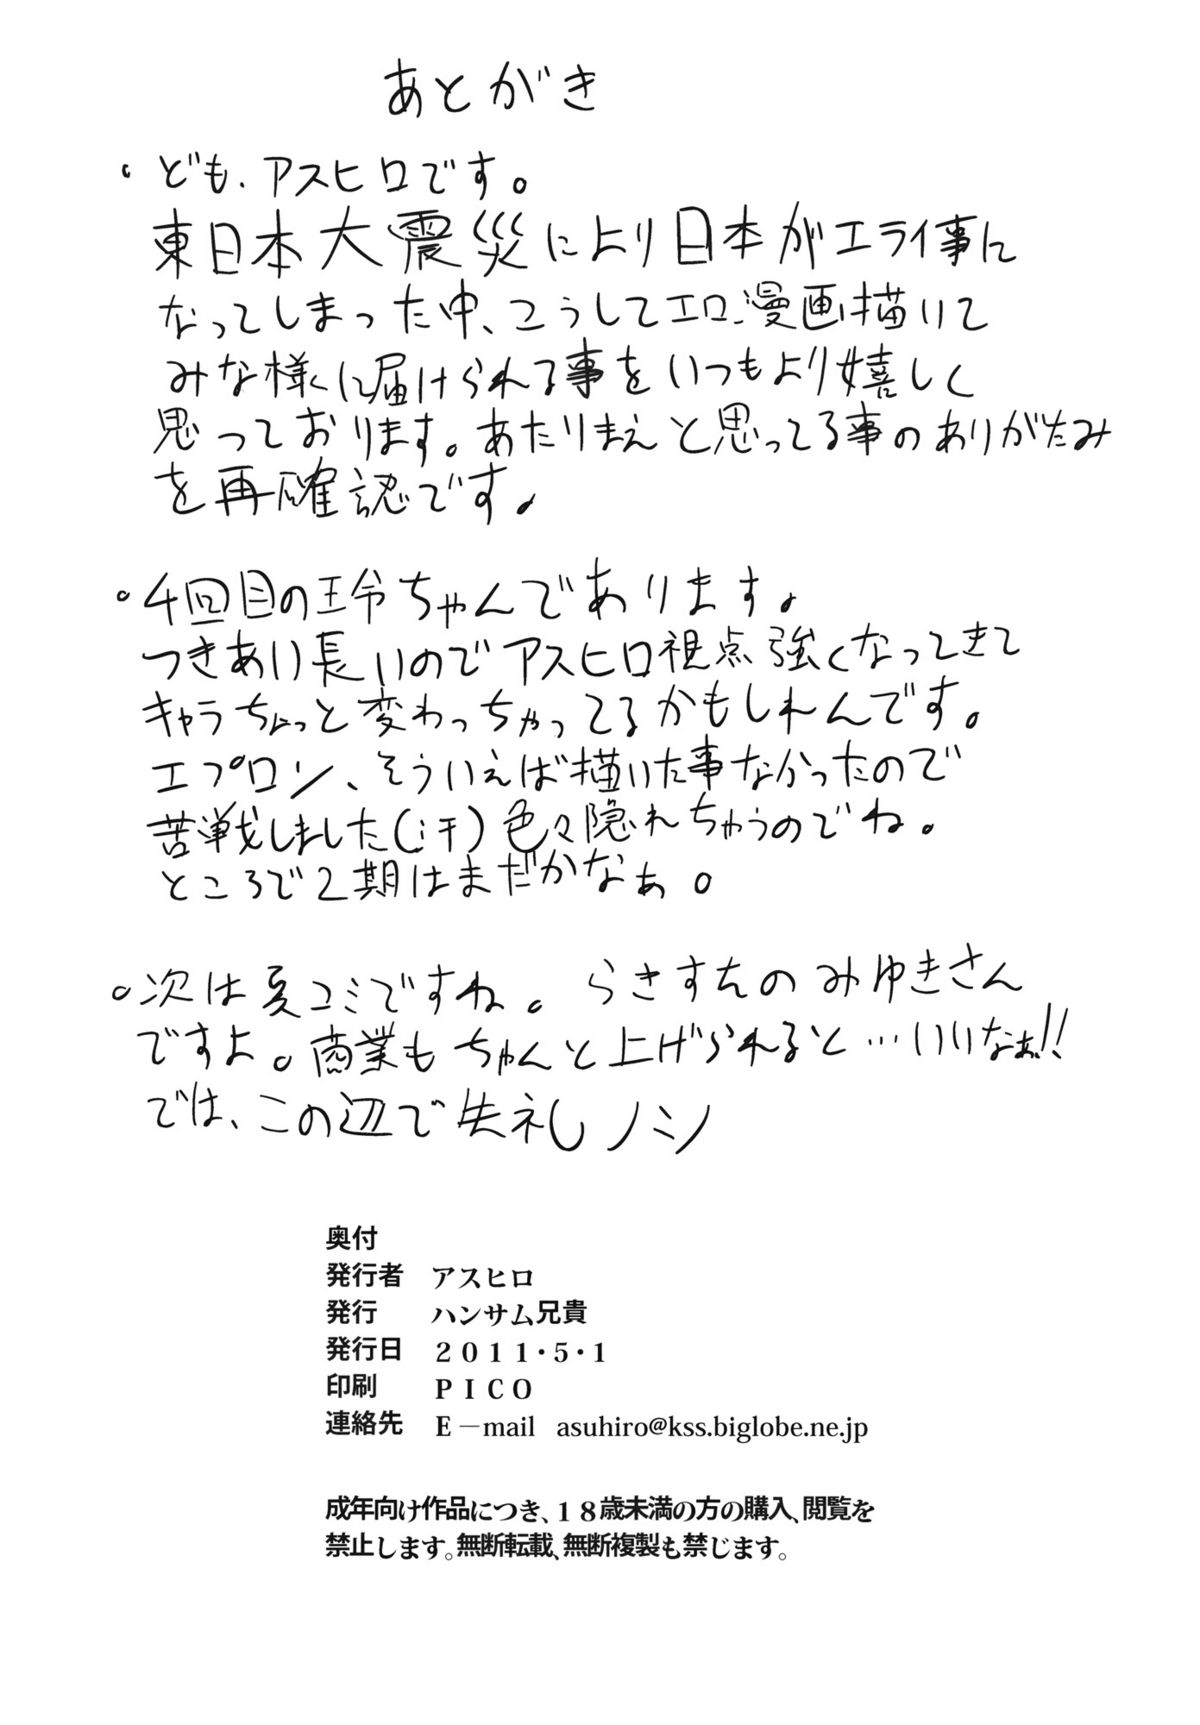 あとがき
・ども、アスヒロです。
東日本大震災により日本がエライ事に
なってしまった中、こうしてエロ漫画描いて
みな様に届けられる事をいつもより嬉しく
思っております。あたりまえと思ってる事のありがたみ
を再確認です。
・4回目の玲ちゃんであります。
つきあい長いのでアスヒロ視点強くなってきて
キャラちょっと変わっちゃってるかもしれんです。
エプロン、そういえば描いた事なかったので
苦戦しました(汗)色々隠れちゃうのでね。
ところで2期はまだかなぁ。
○次は夏コミですね。らきすたのみゆきさん
ですよ。商業もちゃんと上げられると…いいなぁ!!
では、この辺で失礼ノシ
奥付
発行者 アスヒロ
発行 ハンサム兄貴
発行日 2011・5・1
印刷 PICO
連絡先 E－mail asuhiro@kss.biglobe.ne.jp
成年向け作品につき、18歳未満の方の購入、閲覧を
禁止します。無断転載、無断複製も禁じます。